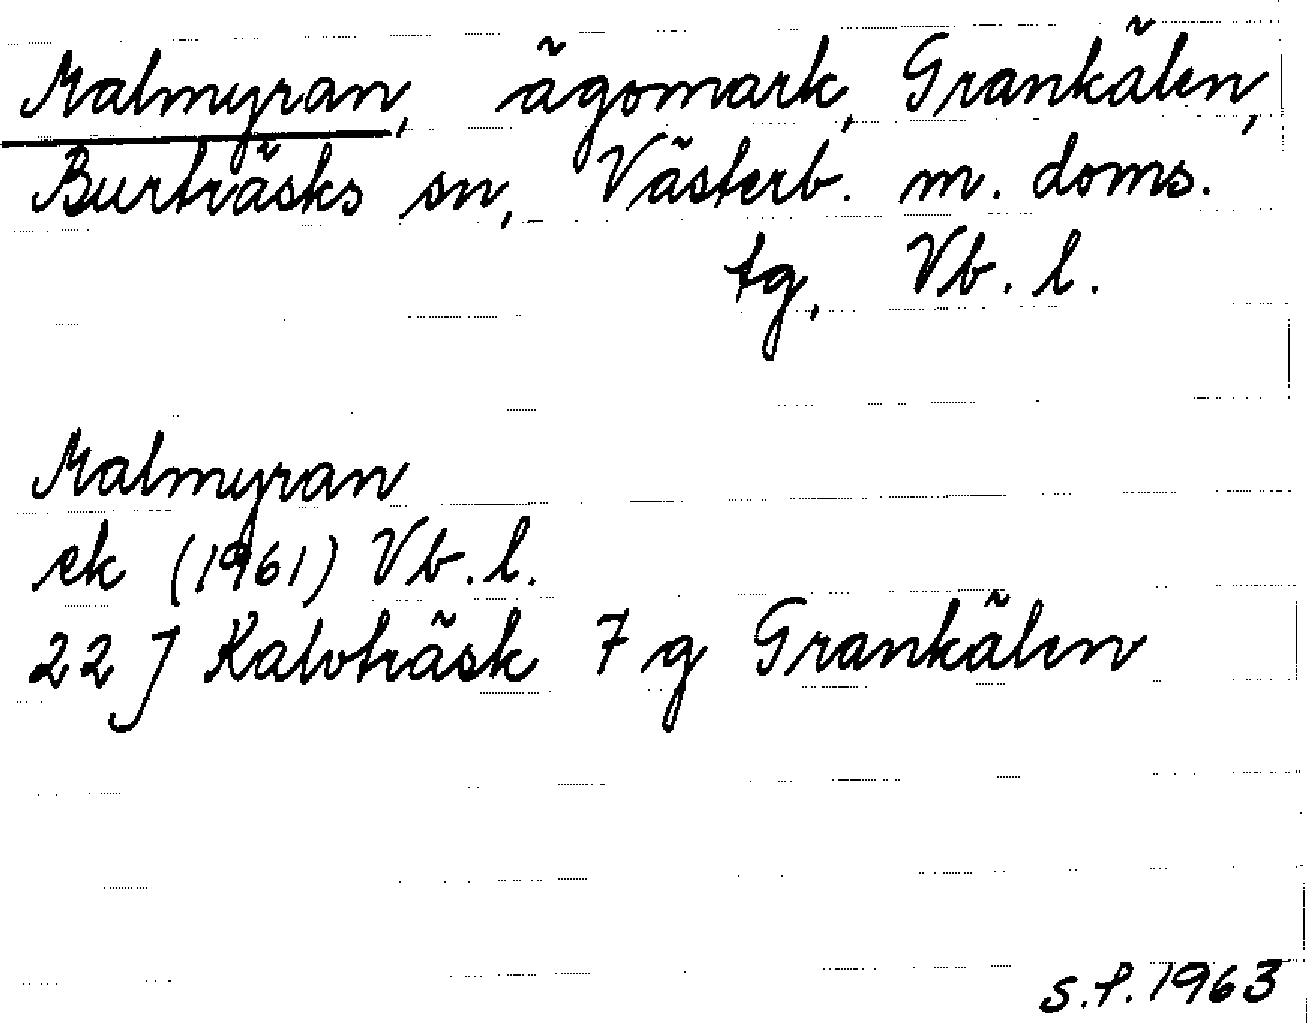 Malmyran, ägomark, Grankälen,
Burträsks sn, Västerb. m. doms.
tg, Vb. l.
Malmyran
ek (1961) Vb. l.
22 J Kalvträsk 7 g Grankälen
s.f. 1963